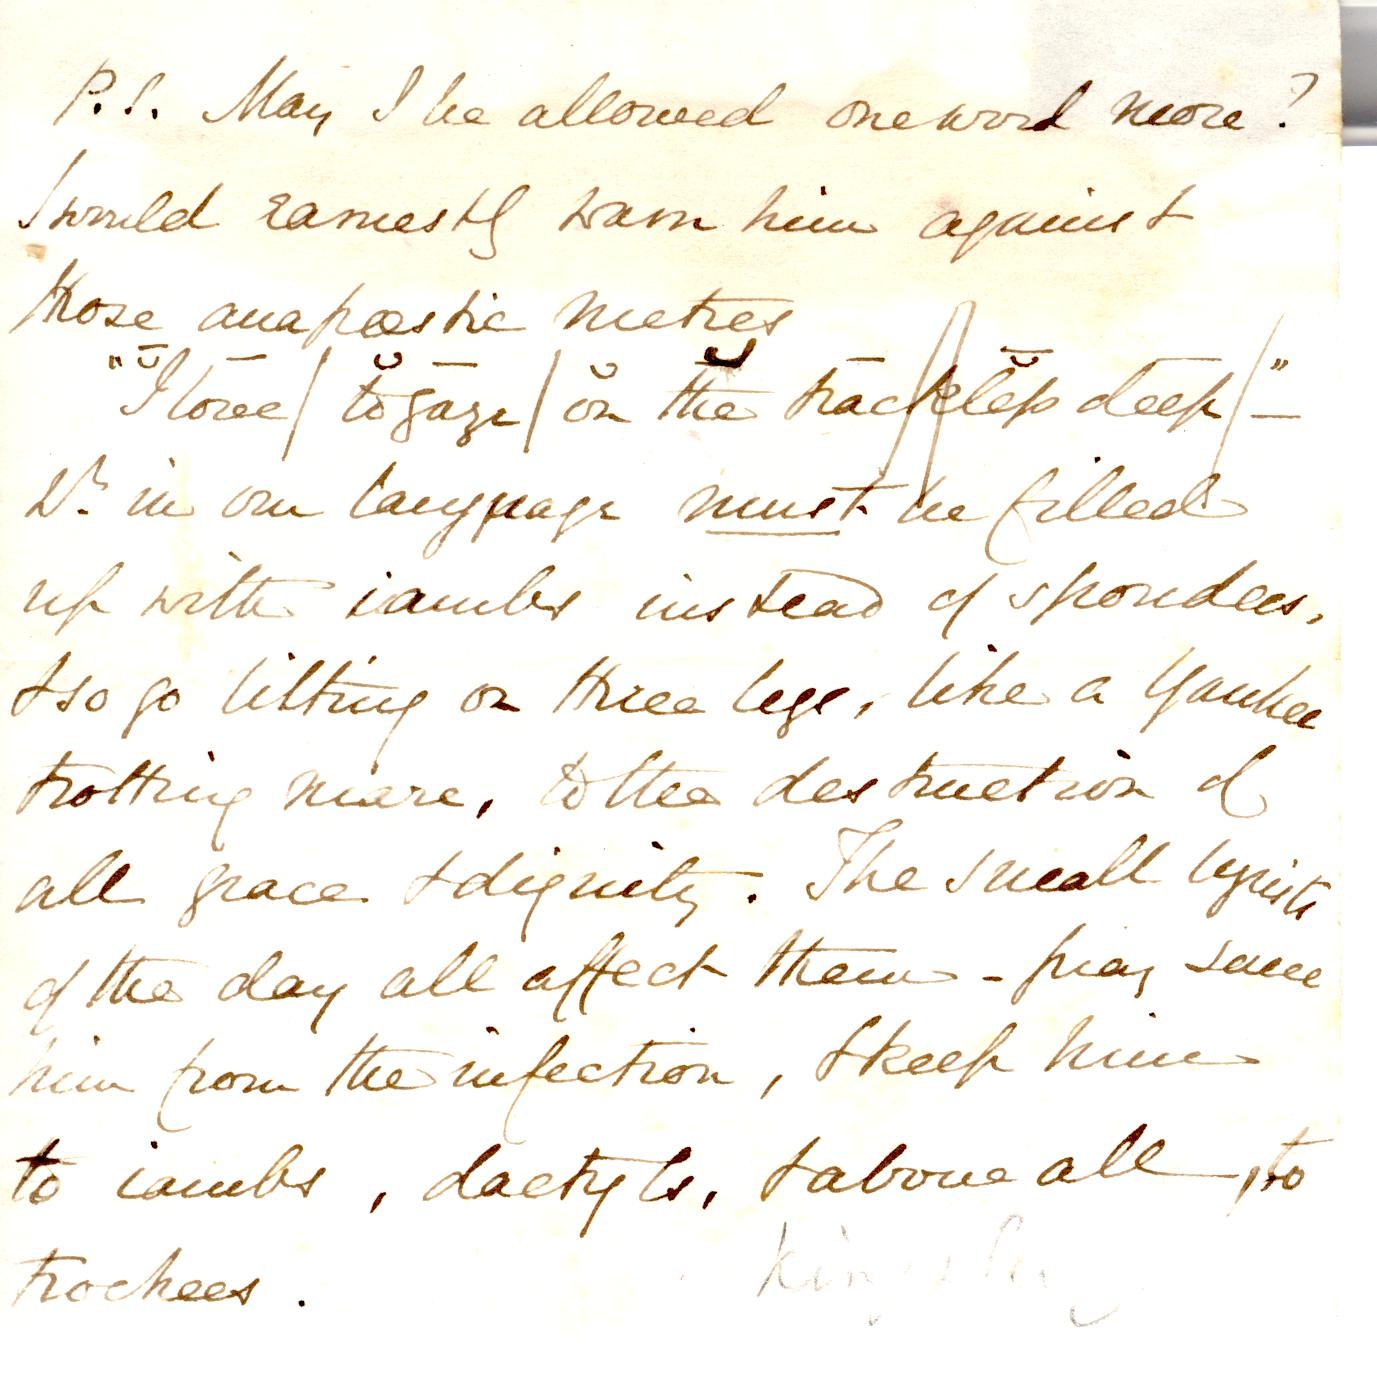 P.S. May I be allowed one word more?
I would earnestly warn him against
those anapœstic metres
"I love / to gaze / on the track / less deep / " —
Wh. in our language must be filled
up with iambs instead of spondees,
& so go lilting on three legs, like a Yankee
trotting mare, to the destruction of
all grace & dignity. The small lyrists
of the day all affect them - pray save
him from the infection, & keep him
to iambs, dactyls, & above all, to
trochees.
Kingsley